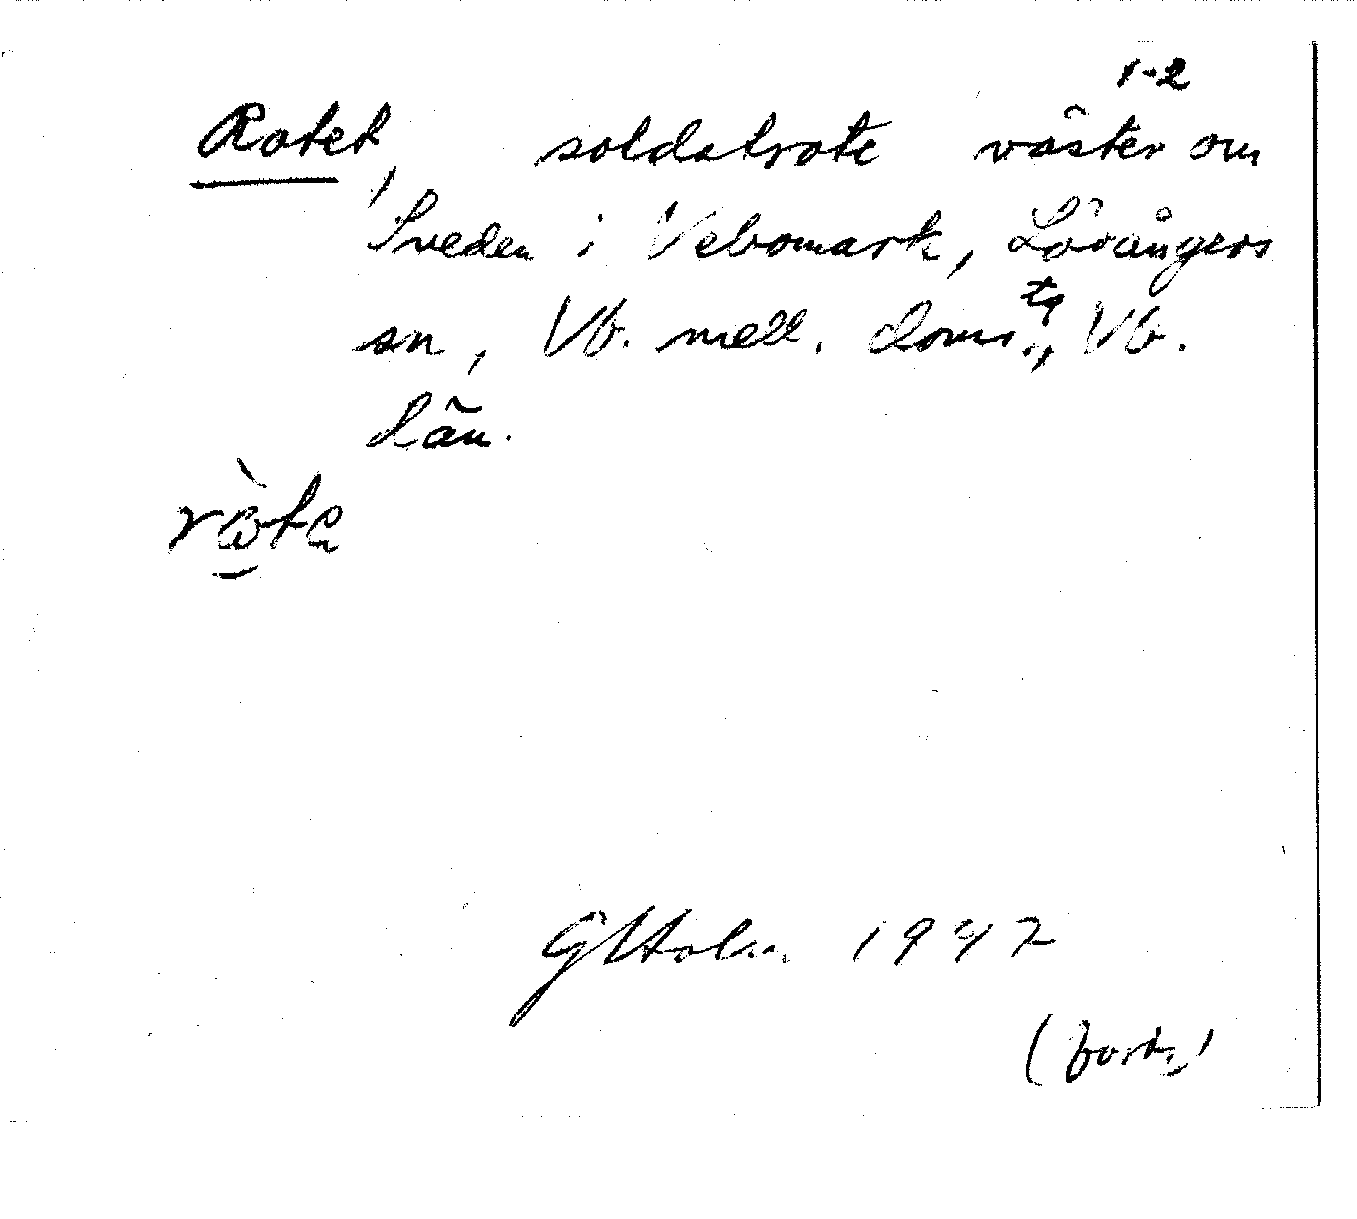 1-2
Rotet, soldatrote väster om
Sveden i Vebomark, Lövångers
sn, Vb. mell. doms tg, Vb.
län.
ròta
G Holm 1947
(forts.)